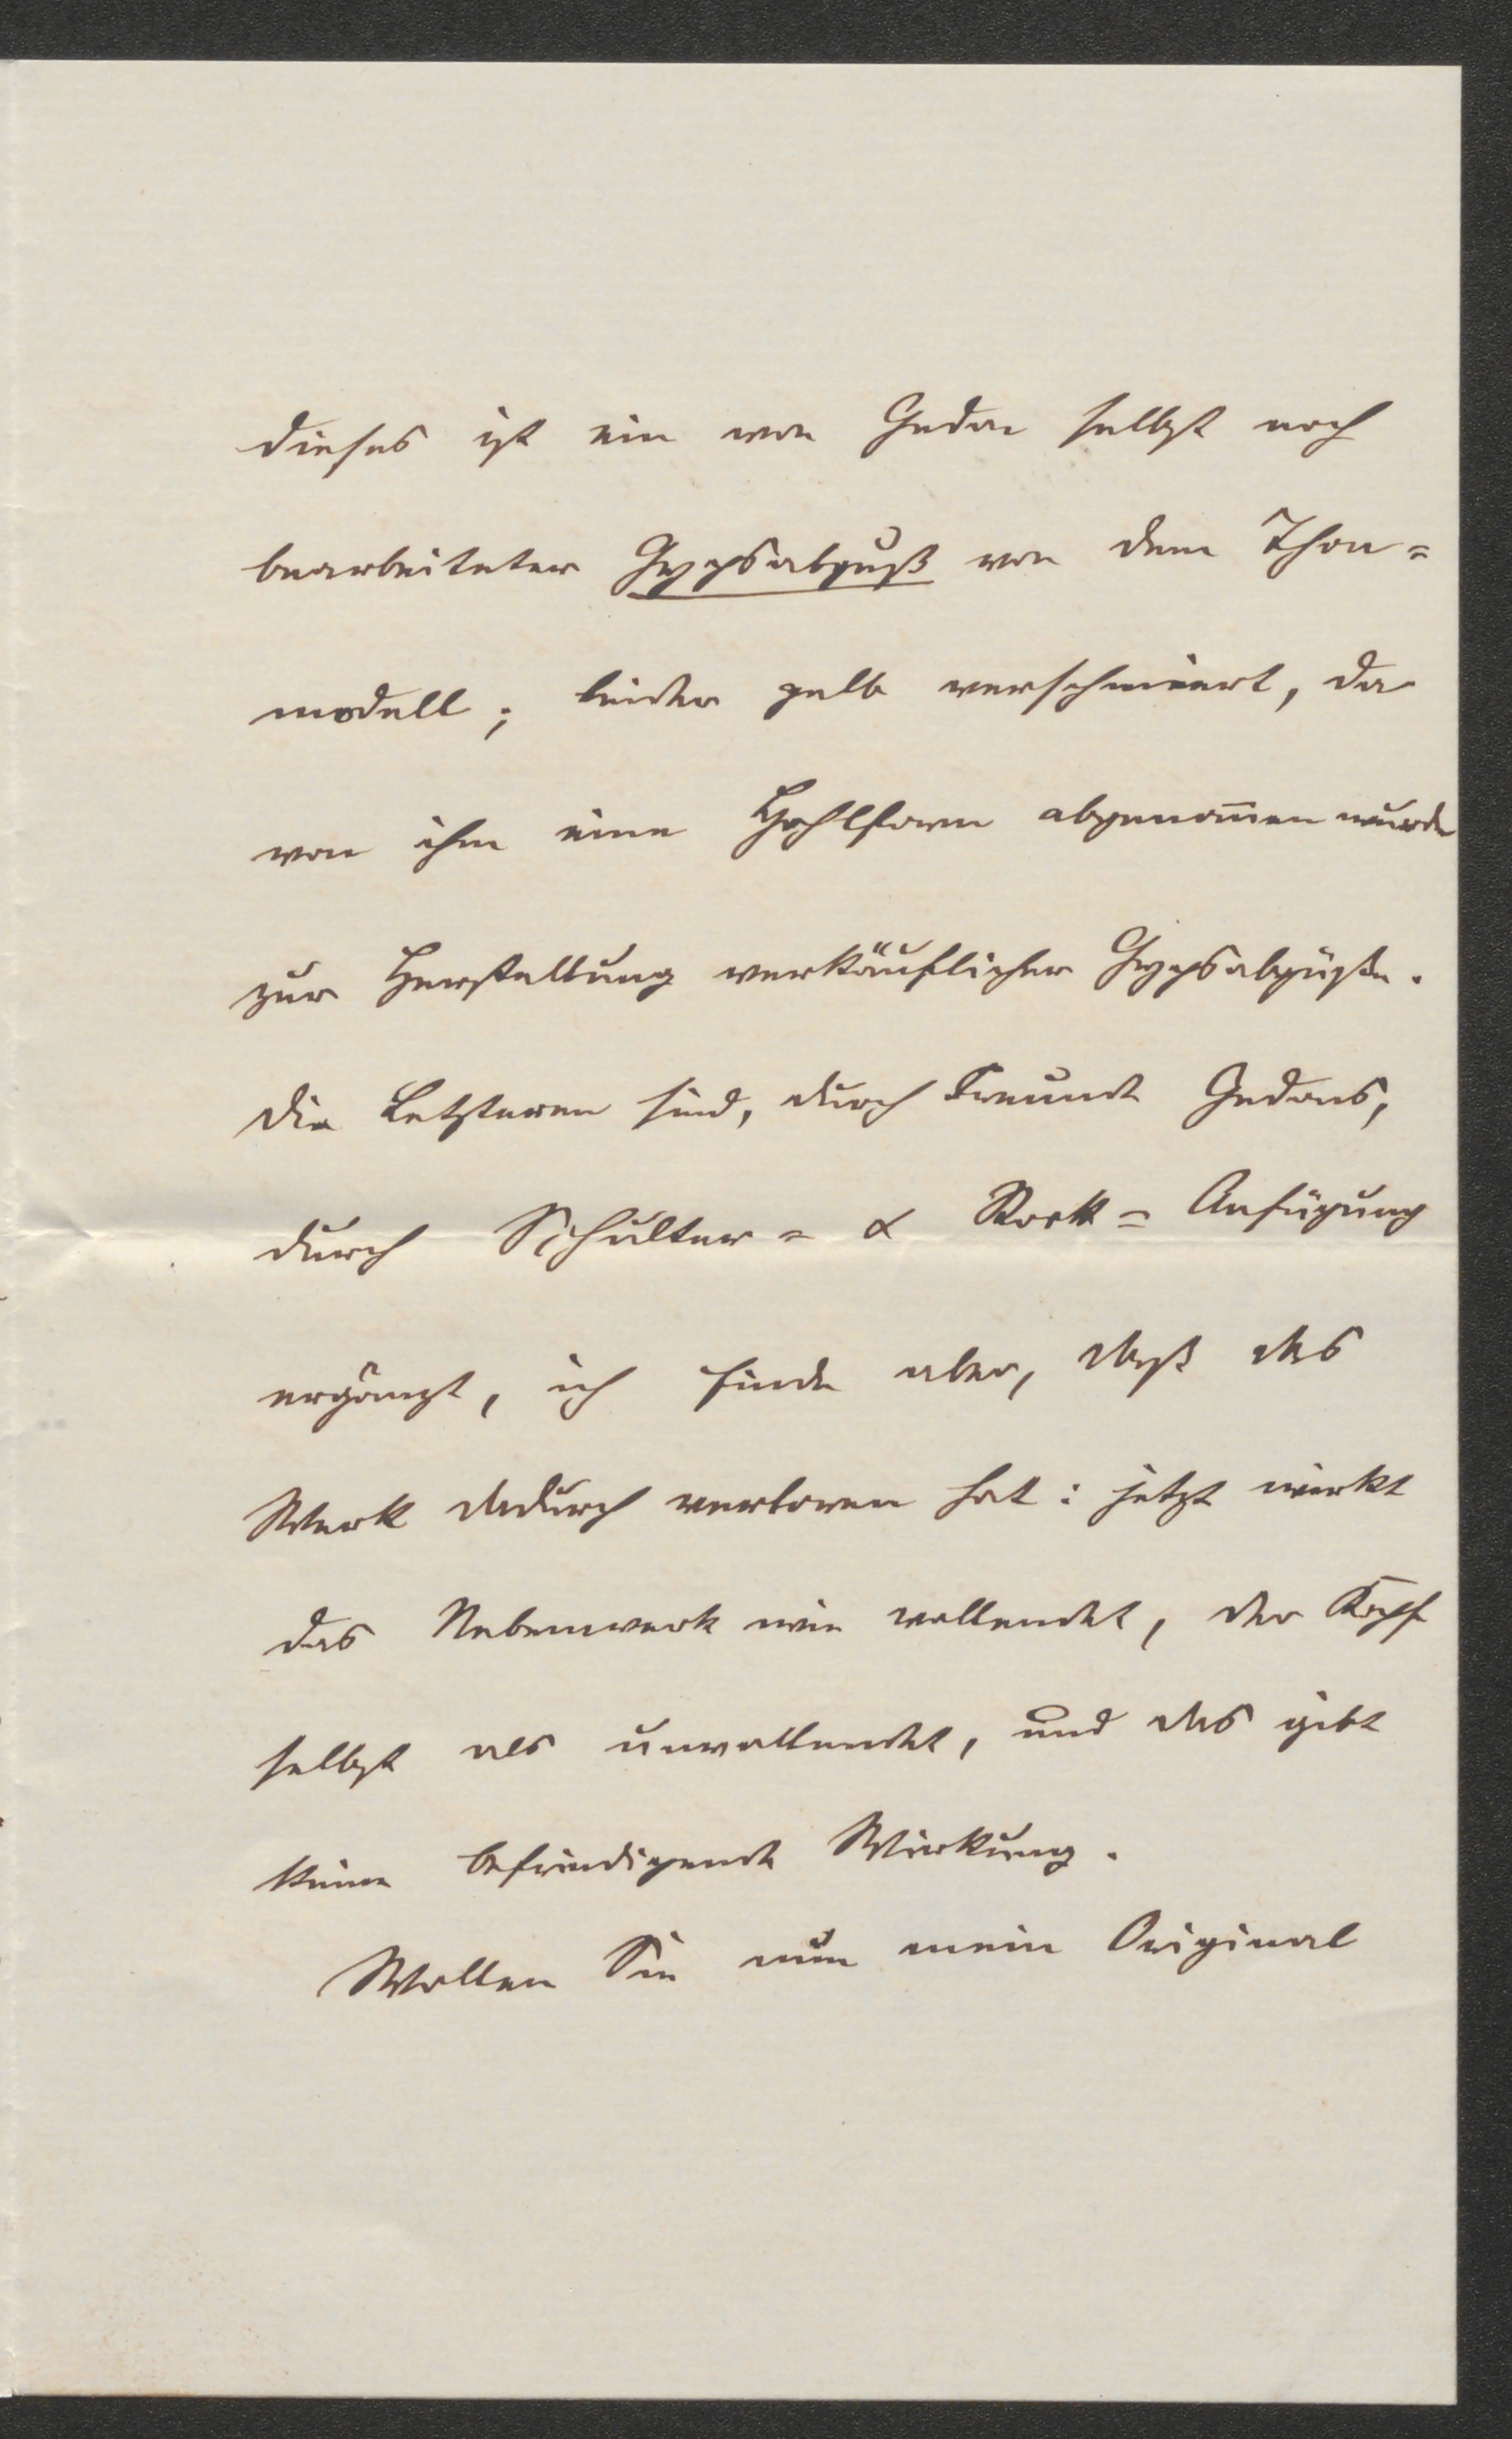 dieses ist ein von Gedon selbst noch
bearbeiteter Gypsabguß von dem Thon=
modell; leider gelb verschmiert, da
von ihm eine Hohlform abgenom̅en wurde
zur Herstellung verkäuflicher Gypsabgüße.
Die Letzteren sind, durch Freunde Gedons,
durch Schulter= & Rock= Anfügung
ergänzt, ich finde aber, daß das
Werk dadurch verloren hat: jetzt wirkt
das Nebenwerk wie vollendet, der Kopf
selbst als unvollendet, und das gibt
keine befriedigende Wirkung.
Wollen Sie nun mein Original